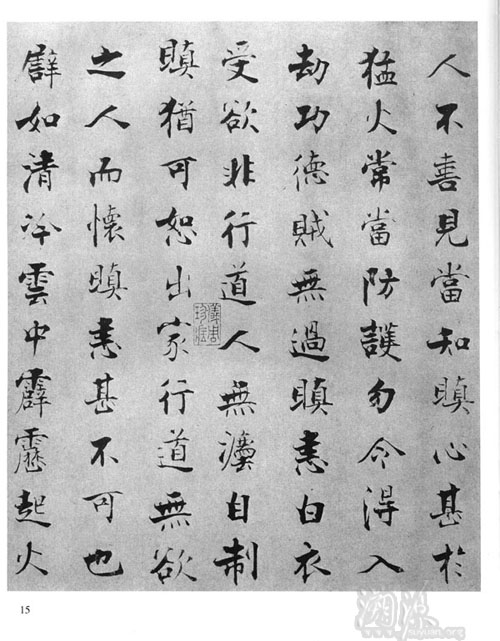 人不喜見當知瞋心甚於
猛火常當防護勿令得入
劫功德賊無過瞋恚白衣
受欲非行道人無灋自制
瞋猶可恕出家行道無欲
之人而懷瞋恚甚不可也
譬如清冷雲中霹靂起火
儀周
珍藏
15
溯源
suyuan.org